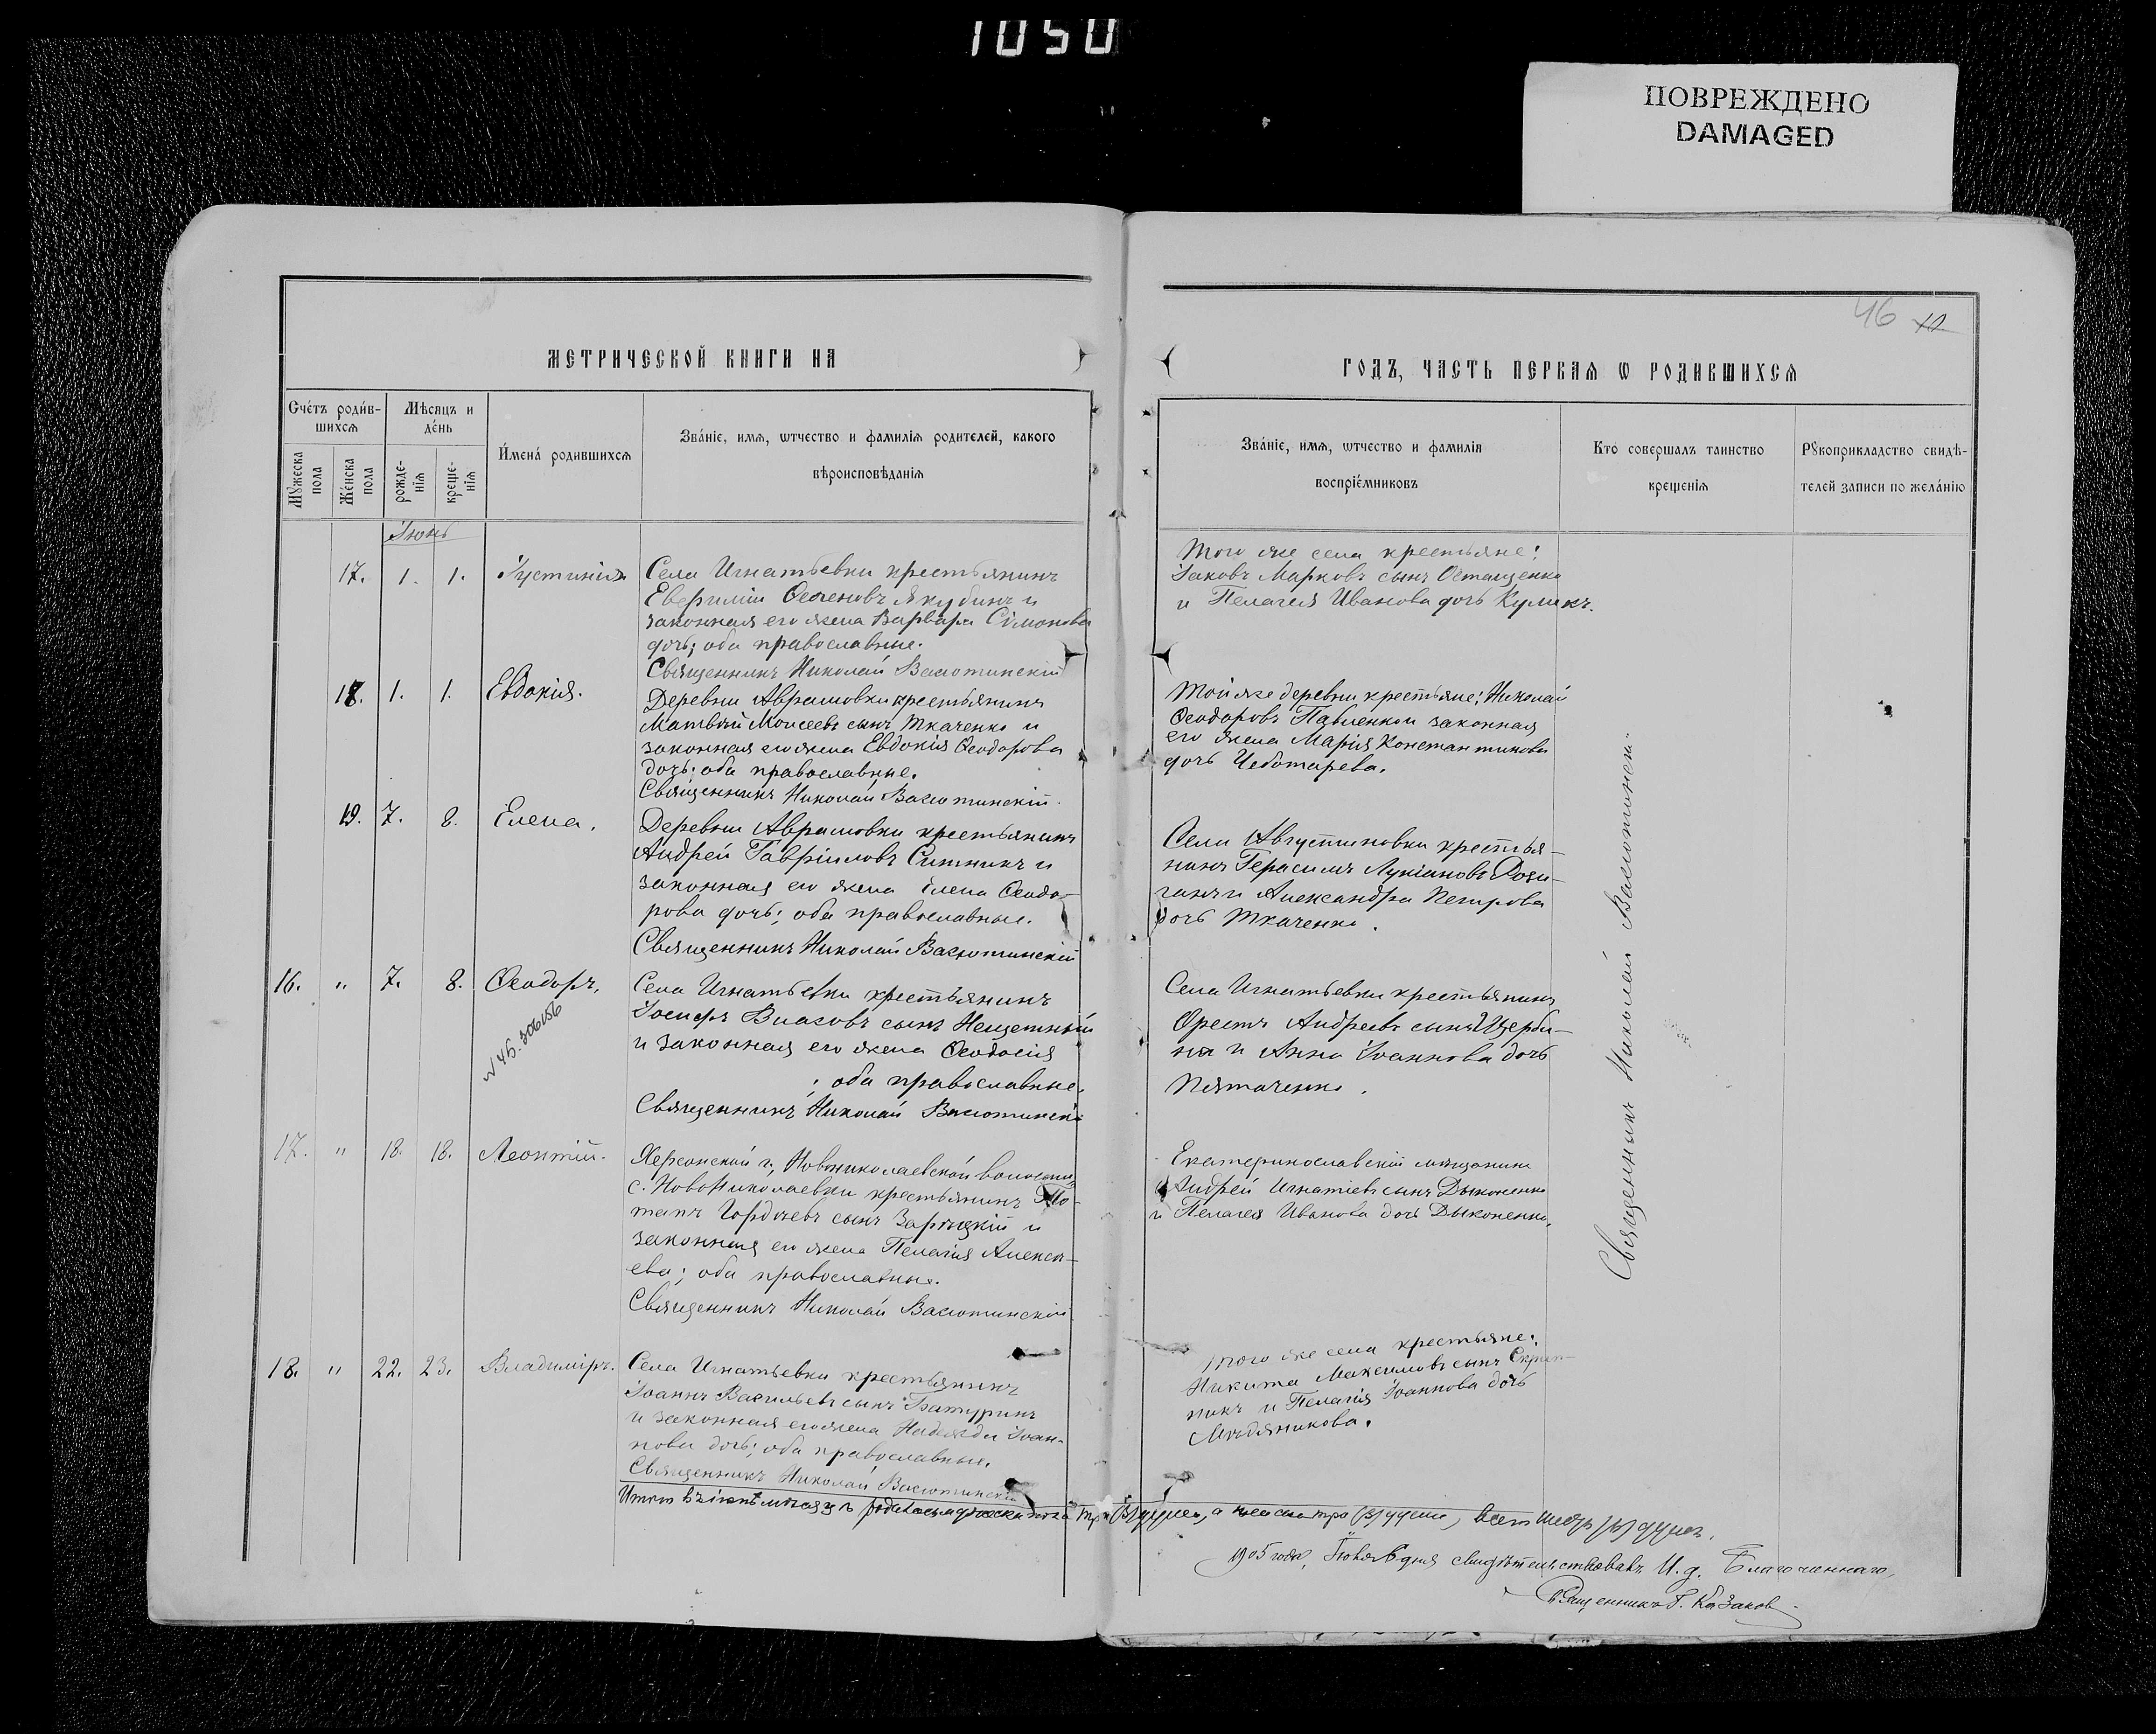 1050
ПОВРЕЖДЕНО
DAMAGED
46 12
МЕТРИЧЕСКОЙ КНИГИ НА
ГОДЪ, ЧАСТЬ ПЕРВАЯ Ѡ РОДИВШИХСЯ
Счетъ родив-
шихся
Мѣсяцъ и
день
Мужеска пола
Женска пола
рожде-
нія
креще-
нія
Имена родившихся
Званіе, имя, ѡтчество и фамилія родителей, какого
вѣроисповѣданія
Званіе, имя, ѡтчество и фамилія
воспріемниковъ
Кто совершалъ таинство
крещенія
Рукоприкладство свидѣ-
телей записи по желанію
Іюнь
17. 1. 1. Іустинія
Села Игнатьевки крестьянинъ
Евфимій Семеновъ Якубинъ и
законная его жена Варвара Симонова
дочь; оба православные.
Священникъ Николай Васютинскій
Того же села крестьяне:
Іаковъ Марковъ сынъ Остащенко
и Пелагея Иванова дочь Куликъ.
18. 1. 1. Евдокія.
Деревни Аврамовки крестьянинъ
Матвѣй Моисеевъ сынъ Ткаченко и
законная его жена Евдокія Ѳеодорова
дочь; оба православные.
Священникъ Николай Васютинскій.
Той же деревни крестьяне: Николай
Ѳеодоровъ Павленко и законная
его жена Марія Константинова
дочь Чеботарева.
19. 7. 8. Елена.
Деревни Аврамовки крестьянинъ
Андрей Гавріиловъ Ситникъ и
законная его жена Елена Ѳеодо-
рова дочь; оба православные.
Священникъ Николай Васютинскій
Села Августиновки крестья-
нинъ Герасимъ Лукіановъ
и Александра Петрова
дочь Ткаченко.
16. " 7. 8. Ѳеодоръ.
Села Игнатьевки крестьянинъ
Іосифъ Власовъ сынъ Нещетный
и законная его жена Ѳеодосія
; оба православные.
Священникъ Николай Васютинскій
Села Игнатьевки крестьянинъ
Орестъ Андреевъ сынъ Щерби-
на и Анна Іоаннова дочь
Пятаченко.
17. " 18. 18. Леонтій.
Херсонской г., Новониколаевской волости,
с. Новониколаевки крестьянинъ По-
тапъ Гордѣевъ сынъ Зарѣцкій и
законная его жена Пелагія Алексѣ-
ева; оба православные.
Священникъ Николай Васютинскій
Екатеринославскій мѣщанинъ
Андрей Игнатіевъ сынъ Дыконенко
и Пелагея Иванова дочь Дыконенко.
18. " 22. 23. Владиміръ.
Села Игнатьевки крестьянинъ
Іоаннъ Васильевъ сынъ Батуринъ
и законная его жена Надежда Іоан-
нова дочь; оба православные.
Священникъ Николай Васютинскій
Того же села крестьяне:
Никита Максимовъ сынъ Скрип-
никъ и Пелагія Іоаннова дочь
Мѣдяникова.
Священникъ Николай Васютинскій
Итого въ іюнѣ мѣсяцѣ родилось мужеска пола три (3) души, а женска три (3) души, всего шесть (6) душъ.
1905 года, Іюля 6 дня свидѣтельствовалъ И. д. Благочиннаго,
Священникъ Г. Казаковъ